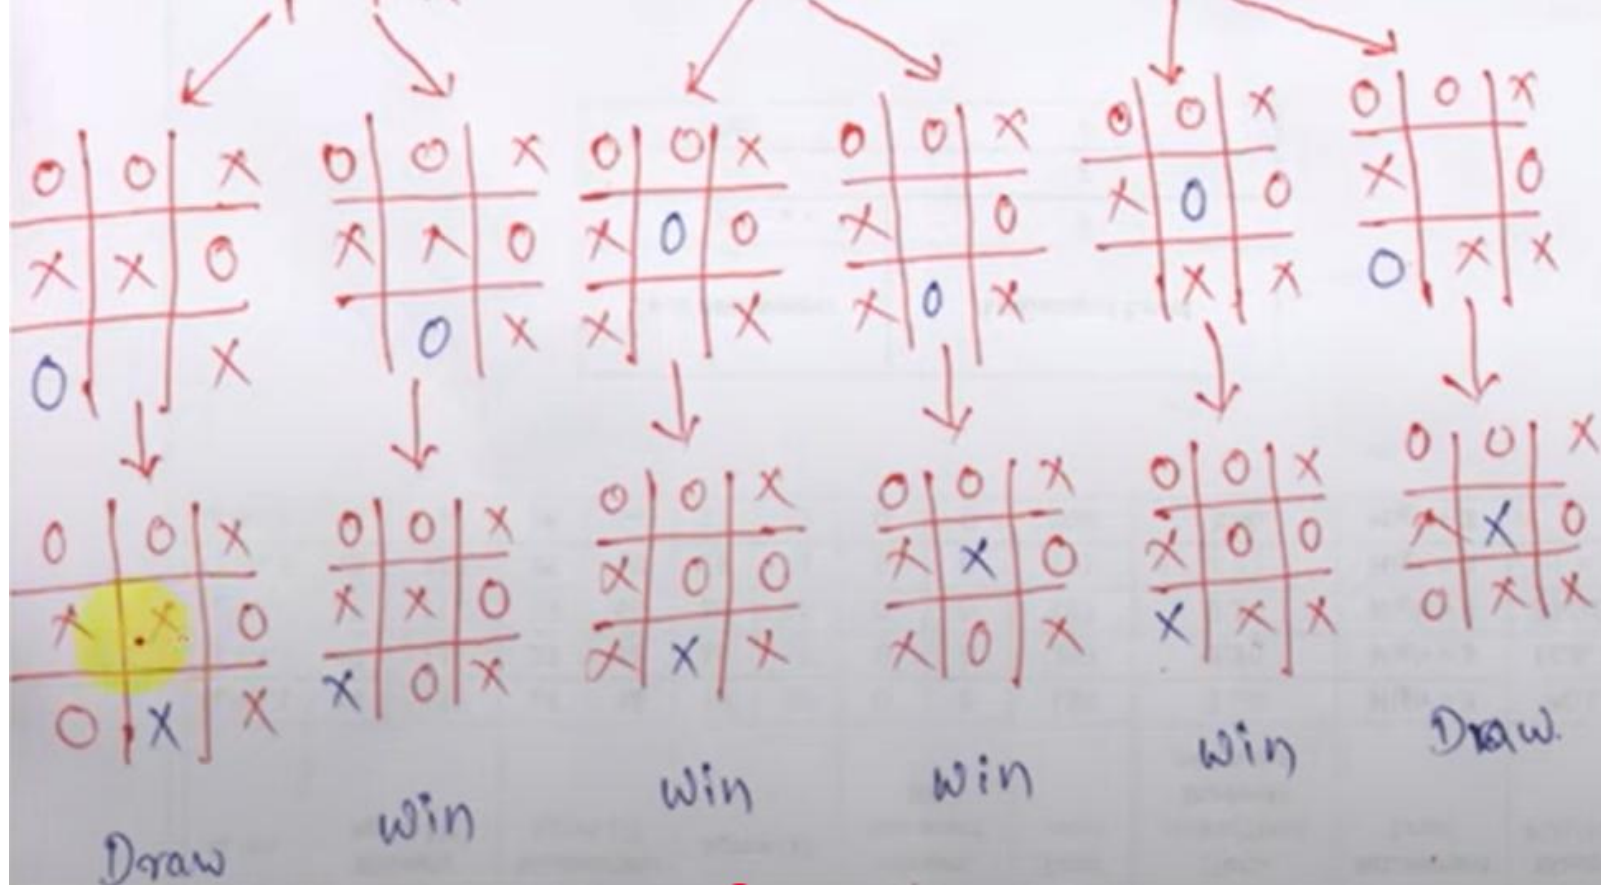 O O X
X X O
O X
O O X
X X O
O X
O O X
X O O
X X
O O X
X O
X O X
O O X
X O O
X X
O O X
X O
O X X
O O X
X X O
O X X
O O X
X X O
X O X
O O X
X O O
X X X
O O X
X X O
X O X
O O X
X O O
X X X
O O X
X X O
O X X
Draw
Win
Win
Win
Win
Draw.